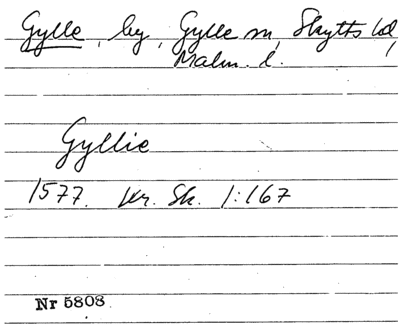 Gylle, by, Gylle sn, Skytts hd,
Malm. l.
Gyllie
1577. Kr. Sk. 1:167
Nr 5808